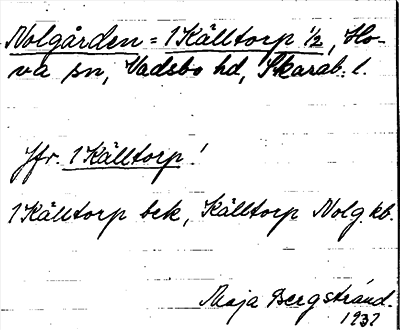 Nolgården = 1 Källtorp 1/2, Ho-
va sn, Vadsbo hd, Skarab. l.
Jfr. 1 Källtorp!
1 Källtorp bek, Källtorp Nolg. kb.
Maja Bergstrand.
1937